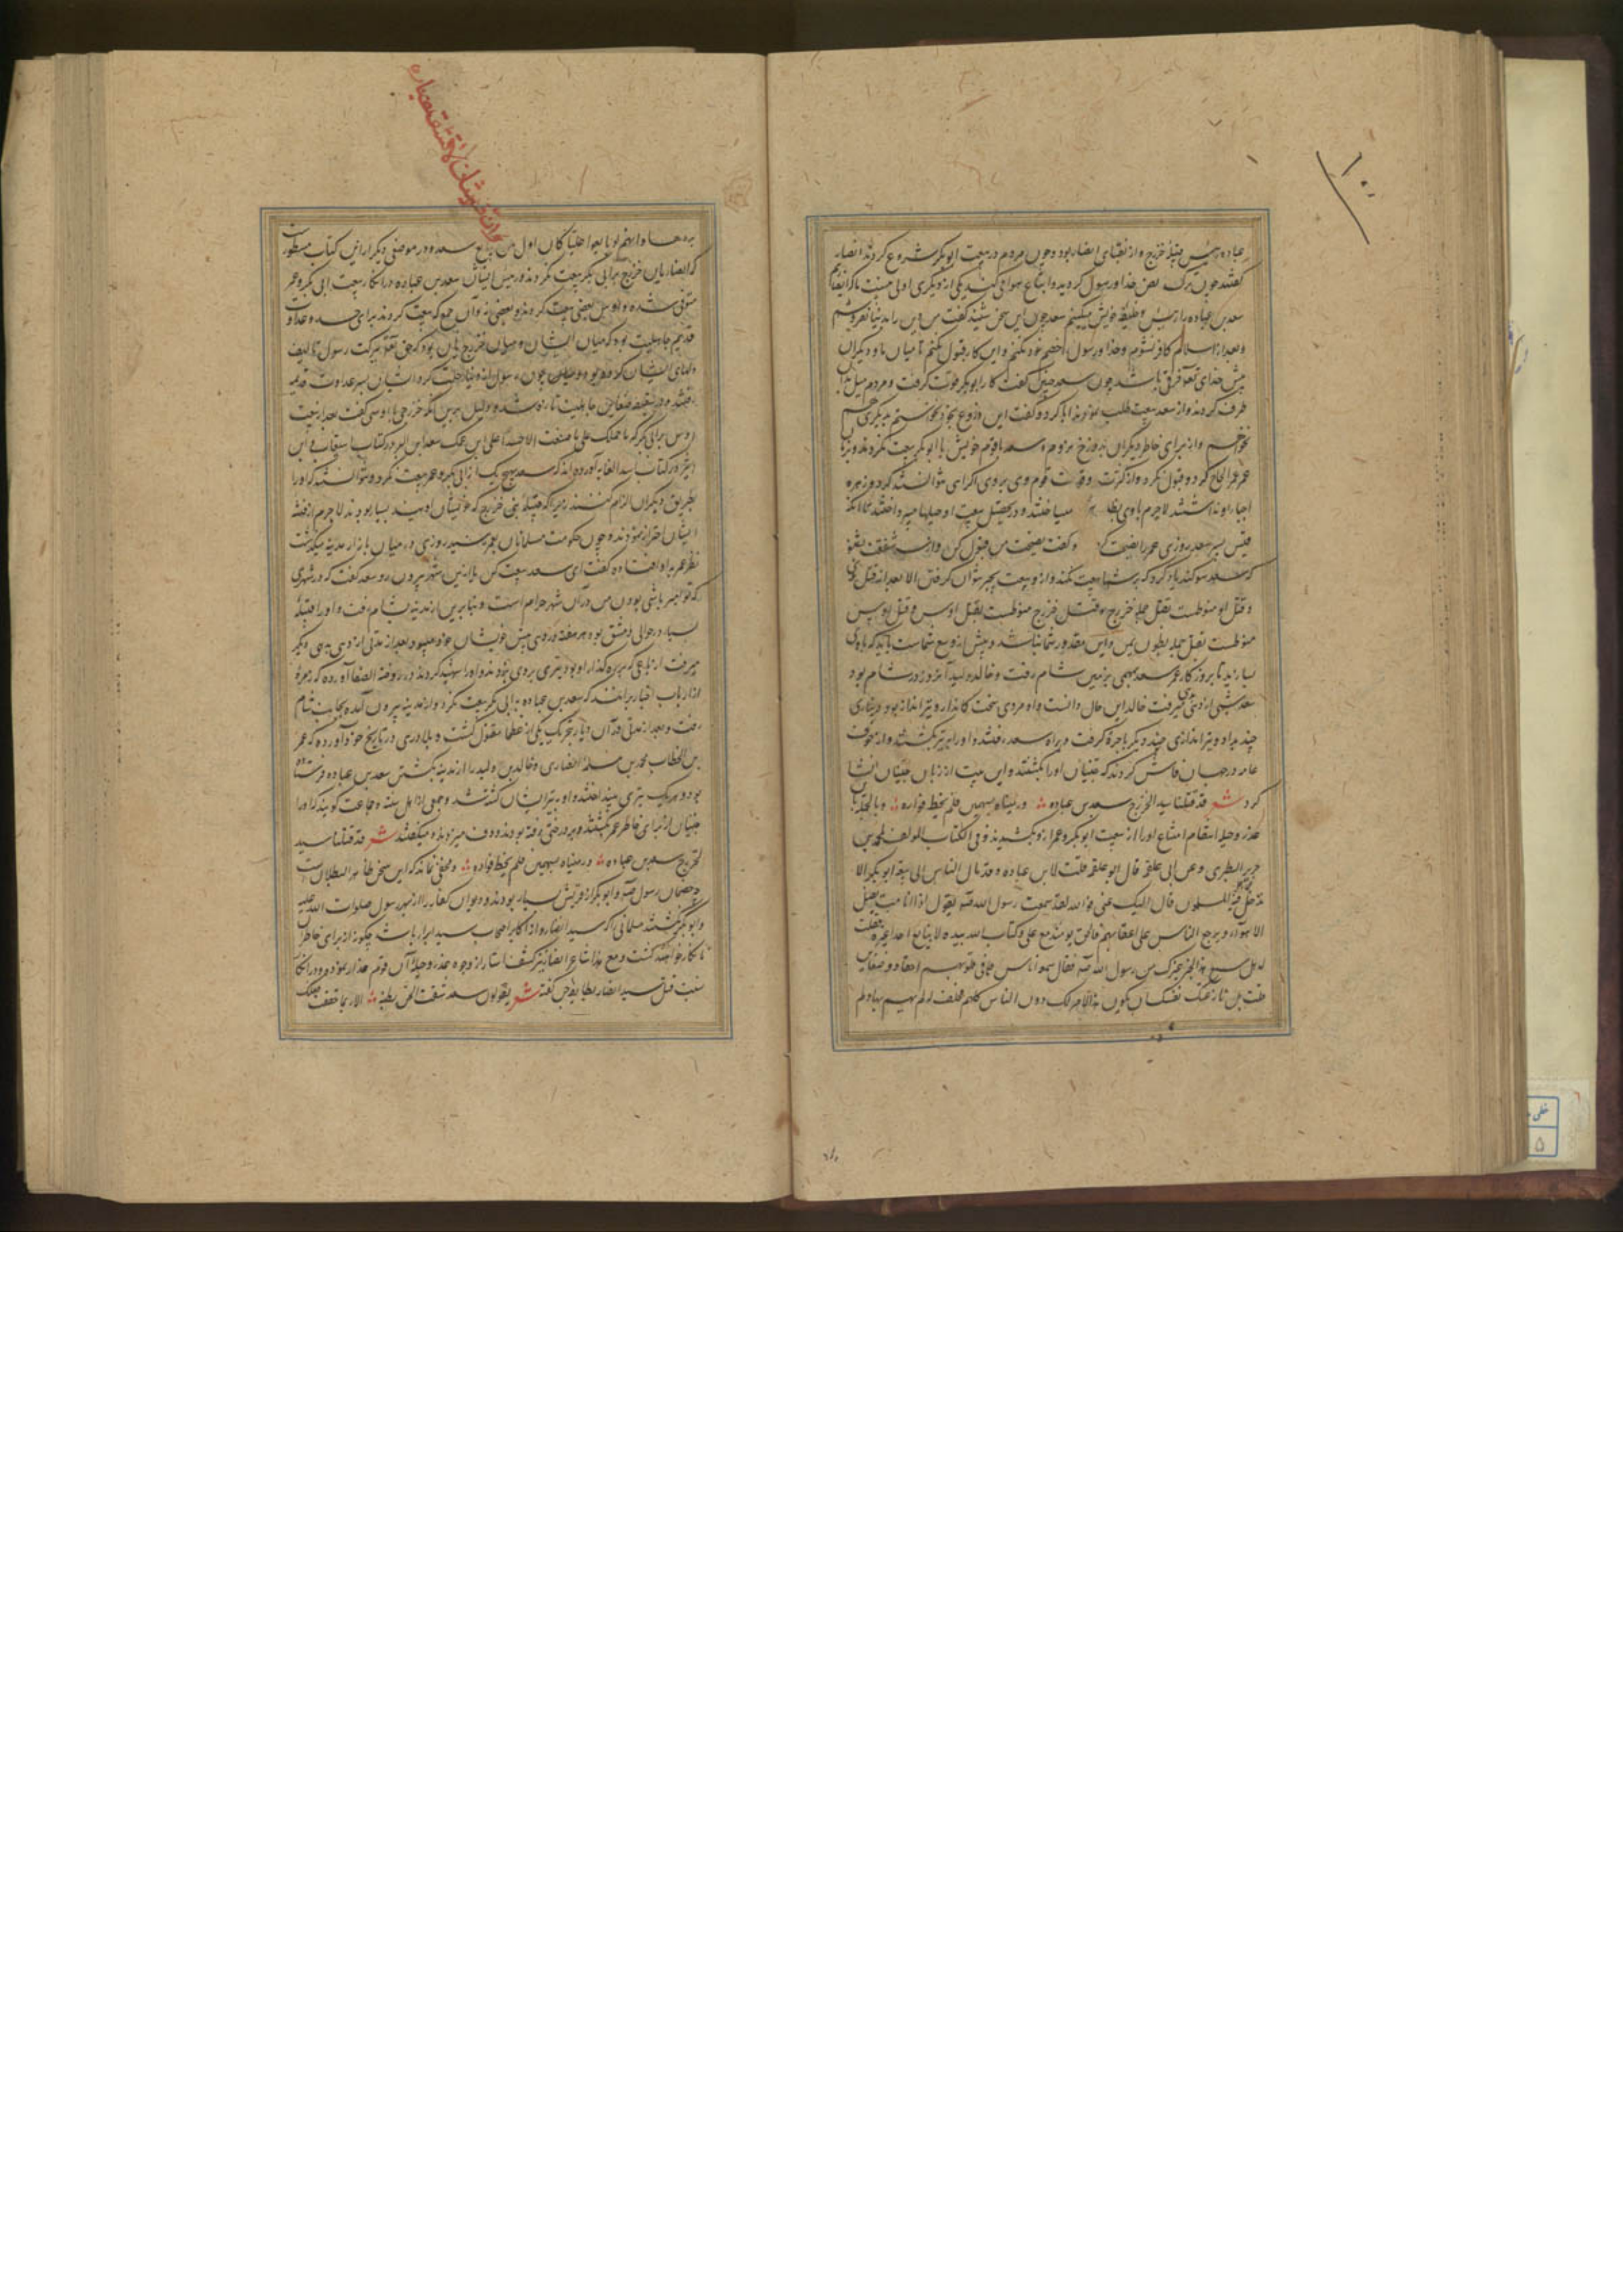 عباده رئیس قبیلهٔ خزرج و از نقبای انصار بود و چون مردم در بیعت ابوبکر شروع کردند انصار
گفتند چون ترک نص خدا و رسول کردید و اتباع هوا می کنید یکی از دیگری اولی نیست ما که انصاریم
سعد بن عباده را رئیس و خلیفهٔ خویش میکنیم سعد چون این سخن شنید گفت من دین را بدنیا نفروشم
و بعد از اسلام کافر نشوم و خدا و رسول را خصم خود نکنم و این کار قبول نکنم تا میان ما و دیگران
پیش خدای تعالی فرق باشد چون سعد چنین گفت کار ابوبکر قوت گرفت و مردم میل بدان
طرف کردند و از سعد بیعت طلب نمودند ابا کرد و گفت این دروغ بخود نخواستم بدیگری هم
نخواهم و از برای خاطر دیگران بدوزخ نروم و سعد با قوم خویش با ابوبکر بیعت نکردند
عمر الحاح کرد و قبول نکرد و از کثرت و قوت قوم وی بر وی اکراهی نتوانستند کرد و زهره
اجبار او نداشتند لاجرم با وی میساختند و در تحصیل بیعت او حیلها میپرداختند تا آنکه
قیس پسر سعد روزی عمر را نصیحت کرد و گفت نصیحت من قبول کن
که سعد سوگند یاد کرد که بر شما بیعت نکند و ازو بیعت بجبر نتوان گرفتن الا بعد از قتل وی
و قتل او منوطست بقتل جمله خزرج و قتل خزرج منوطست بقتل اوس و قتل اوس
منوطست بقتل جمله بطون یمن و این مقدور شما نباشد و بیش از وسع شماست باید که با وی
بسازید تا بروزگار عمر سعد بزمین شام رفت و خالد ولید آن روز در شام بود
سعد شبی از دهی میرفت خالد این حال دانست و او مردی سخت کماندار و تیرانداز بود
چند و تیراندازی چند دیگر با خود گرفت و بر راه سعد رفتند و او را به تیر بکشتند و از خوف
عامه در جهان فاش کردند که جنیان او را بکشتند و این بیت از زبان جنیان انشا
کرد شعر قد قتلنا سید الخزرج سعد بن عباده و رمیناه بسهمین فلم یخط فواده و بالجمله
عذر و حیله انتقام امتناع او را از بیعت ابوبکر و عمر ازو بکشیدند و فی الکتاب المولف لمحمد بن
جریر الطبری و عن ابی علقمه قال ابو علقمه قلت لابن عباده و قد مال الناس الی بیعة ابی بکر الا
تدخل فیما دخل فیه المسلمون قال الیک عنی فو الله لقد سمعت رسول الله صه یقول اذا انا مت تضل
الاهواء و یرجع الناس علی اعقابهم فالحق یومئذ مع علی و کتاب الله بیده لا نبایع احدا غیره فقلت
له هل سمع هذا الخبر غیرک من رسول الله صه فقال سمعه اناس فی قلوبهم احقاد و ضغاین
قلت بل نازعتک نفسک ان یکون هذا الامر لک دون الناس کلهم فحلف انه لم یهم بها و لم
یردها و انهم لو بایعوا علیا کان اول من بایع سعد و در موضعی دیگر از این کتاب مسطورست
که انصاریان خزرج بر ابی بکر بیعت نکردند و رئیس ایشان سعد بن عباده در انکار بیعت ابی بکر و عمر
متوفی شده و اوس بعضی بیعت کردند و بعضی نه و آن جمع که بیعت کردند برای حسد و عداوت
قدیم جاهلیت بود که میان ایشان و میان خزرجیان بود که حق تعالی ببرکت رسول تالیف
دلهای ایشان کرده بود و چون رسول از دنیا رحلت کرد ایشان بسر عداوت قدیمه
رفتند و ضغاین جاهلیت تازه شد و دلیل برین آنکه خزرجی با اوسی گفت بعد از بیعت
اوس بر ابی بکر که ما حملک علی ما صنعت الا حسدا علی ابن عمک سعد ابن البر در کتاب استیعاب و ابن
اثیر در کتاب اسد الغابه آورده اند که سعد بهیچ یک از ابی بکر و عمر بیعت نکرد و نتوانستند که او را
بطریق دیگران الزام کنند زیرا که قبیله بنی خزرج که خویشان او بودند بسیار بودند لاجرم از فتنه
ایشان احتراز نمودند و چون حکومت مسلمانان بعمر رسید روزی در میان بازار مدینه میگذشت
نظر عمر بر او افتاده گفت ای سعد بیعت کن یا ازین شهر بیرون رو سعد گفت که در شهری
که تو امیر باشی بودن من در آن شهر حرام است و بنابرین از مدینه بشام رفت و او را قبیلهٔ
بسیار در حوالی دمشق بود هر هفته در دهی پیش خویشان خود میبود و بعد از مدتی از دهی بدهی دیگر
میرفت از باغی که بر ره گذار او بود تیری بر وی زدند و او را شهید کردند و در روضة الصفا آورده که زمرهٔ
از ارباب اخبار برآنند که سعد بن عباده با ابی بکر بیعت نکرد و از مدینه بیرون آمده بجانب شام
رفت و بعد از مدتی در آن دیار بتحریک یکی از عظما مقتول گشت و بلادری در تاریخ خود آورده که عمر
بن الخطاب محمد بن مسلمهٔ انصاری و خالد بن ولید را از مدینه بکشتن سعد بن عباده فرستاده
بود و هر یک تیری بینداختند و او به تیر ایشان کشته شد و جمعی از اهل سنت و جماعت گویند که او را
جنیان از برای خاطر عمر بکشتند و بر درختی رفته بودند و دف میزدند و میگفتند شعر قد قتلنا سید
الخزرج سعد بن عباده و رمیناه بسهمین فلم یخط فواده و مخفی نماند که این سخن ظاهر البطلان است
خصمان رسول صه و ابوبکر از قریش بسیار بودند و دیوان کفار را از بهر رسول صلوات الله علیه
و ابوبکر نکشتند مسلمانی را که سید انصار و از اکابر اصحاب سید ابرار باشد چگونه از برای خاطر
نابکار خواهند کشت و مع هذا شاعر انصار نیز کشف استار از وجوه عذر و حیلهٔ آن قوم غدار نموده و در انکار
نسبت قتل سید انصار بطایفهٔ جن گفته شعر یقولون سعد شقت الجن بطنه الا ربما حققت فعلک